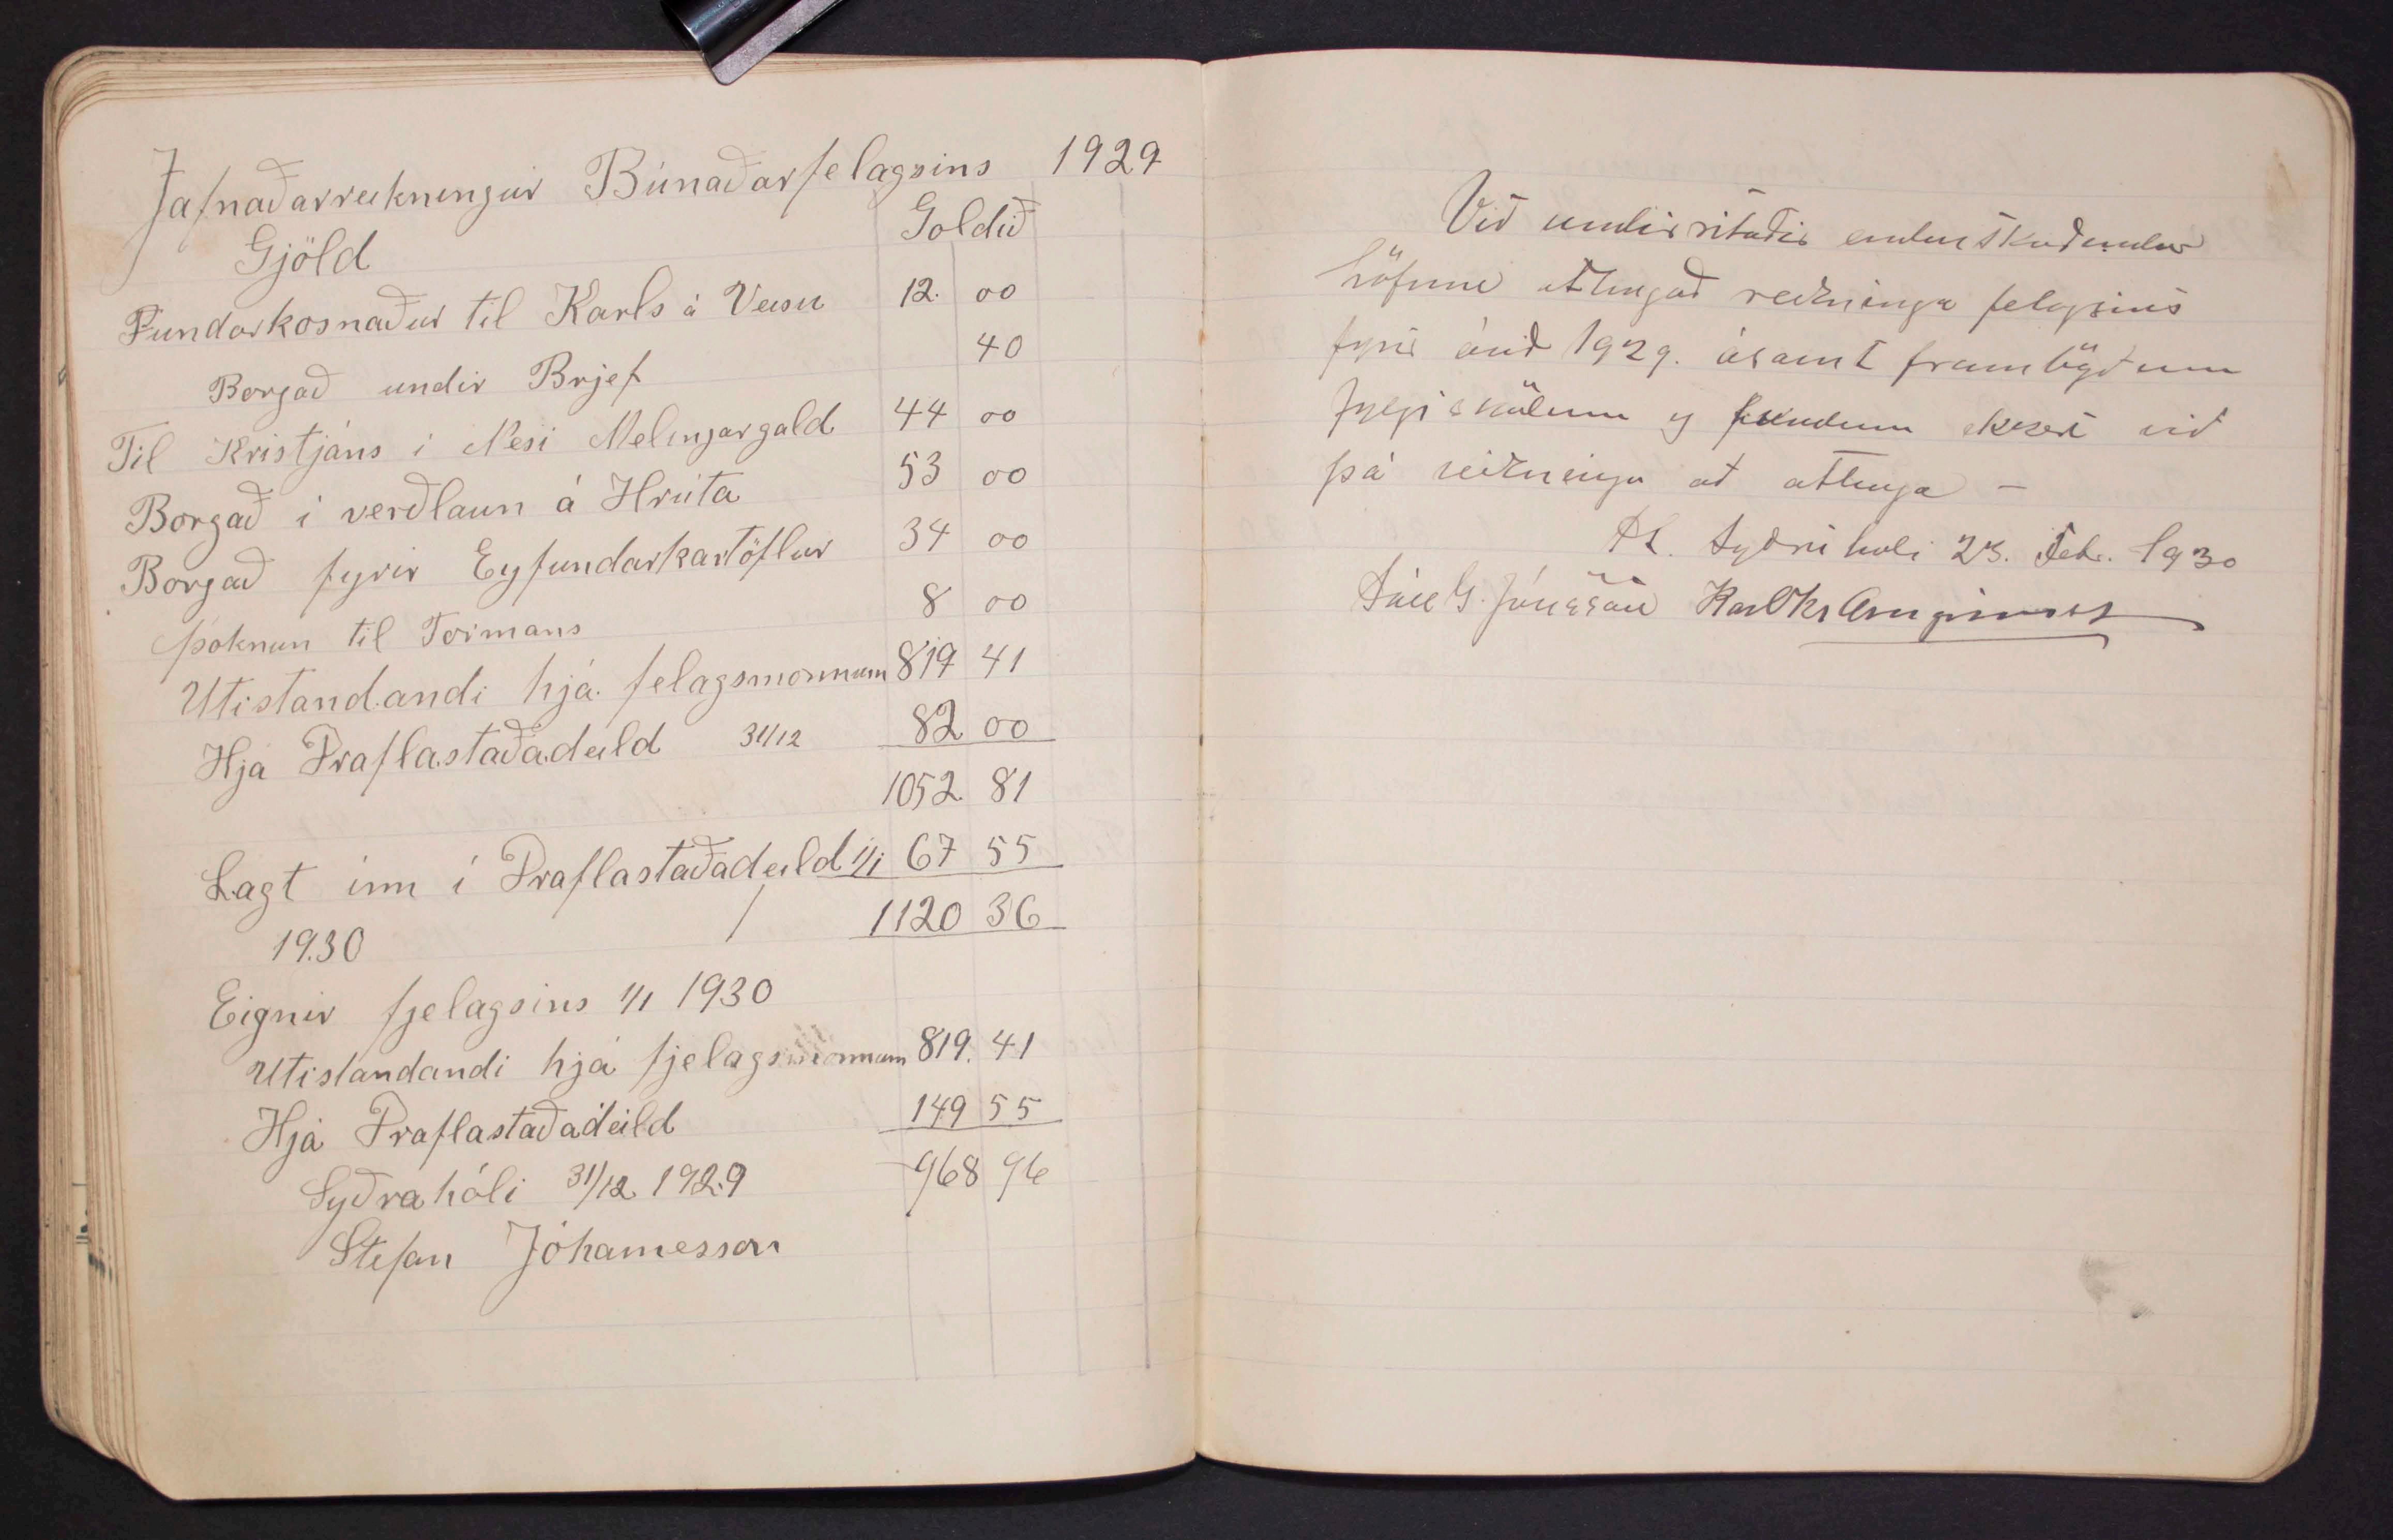 Jafnaðarreikningur Búnaðarfelagsins 1929
Gjöld Goldið
Fundarkosnaður til Karls á Veisu 12. 00
Borgað undir Brjef 40
Til Kristjáns i Nesi Melingargald 44 00
Borgað i verðlaun á Hrúta 53 00
Borgað fyrir Eyfundarkartöflur 34 00
þoknun til Formans 8 00
Utistandandi hjá felagsmonnum 819 41
Hja Draflastaðadeild 31/12 82 00
1052 81
Lagt inn í Draflastaðadeild 1/1 67 55
1930 1120 36
Eignir fjelagsins 1/1 1930
Utistandandi hjá fjelagsmonnum 819. 41
Hjá Draflastaðadeild 149 55
Syðrahóli 31/12 1929 968 96
Stefan Jóhannesson
Við undirritaðir endurskoðendur
höfum athugað reikninga felagsins
fyrir árið 1929. ásamt framlögðum
fylgiskölum og fundum ekkert við
þá reikninga að athuga –
St. Syðrihóli 23. Feb. 1930
Páll G. Jónsson Karl Kr Arngrímsson